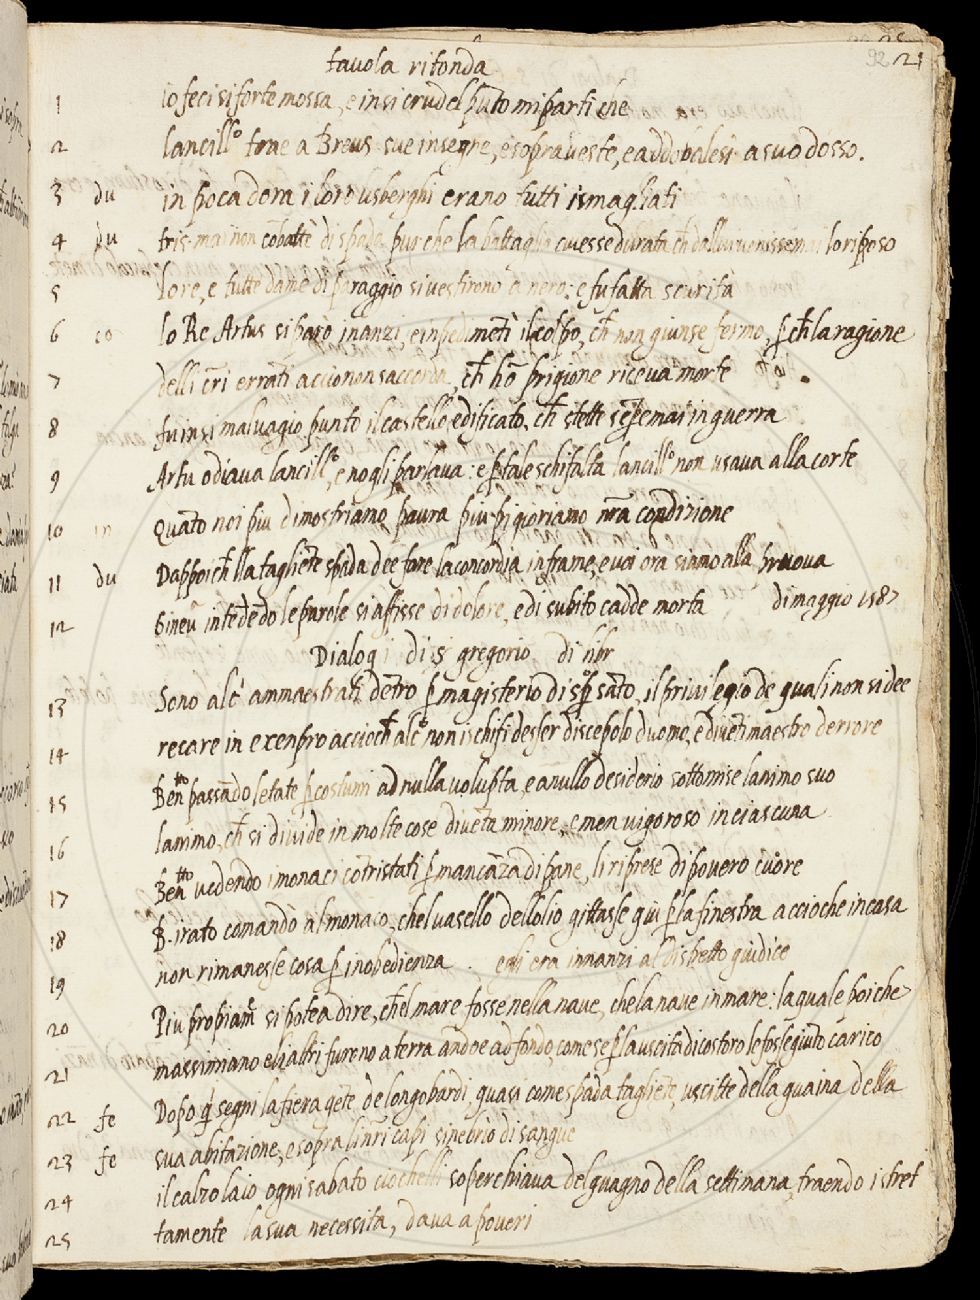 92 21
tauola ritonda
1 io feci si forte mossa, e in si crudel pũto mi parti che
2 lancillº trae a Breus sue insegne, e sopraueste, e addobalesi a suo dosso.
3 du in poca dora i loro usberghi erano tutti ismagliati
4 du tris. mai non cõbattè di spada pur che la battaglia auesse durata ch̃ dallui uenisse mai lo riposo
5 lore, e tutte dame di paraggio si uestirono a nero: e fu fatta scurità
6 co lo Re Artus si parò inanzi, e inpedimetì il colpo, ch̃ non giunse fermo, p ch̃ la ragione
7 delli c̃ri erranti accio non saccorda, ch̃ hõ prigione riceua morte
8 fu in si maluagio punto il castello edificato, ch̃ stette sẽpemai in guerra
9 Artu odiaua lancillº, e nogli parlaua: e p tale schifalta lancillº non usaua alla corte
10 in Quãto noi piu dimostriamo paura piu pigioriamo nr̃a condizione
11 du Dappoich̃ lla tagliẽte spada dee fare la concordia infra me, e uoi ora siamo alla pruoua
12 Gineu intẽdẽdo le parole si affisse di dolore, e di subito cadde morta di maggio 1587
Dialogi di .s. gregorio di libr
13 Sono alc̃ ammaestrati dẽtro p magisterio di sp̃ sãto, il priuilegio de quali non si dee
14 recare in exenpro accioch̃ alcº non ischifi desser discepolo duomo, e diuẽti maestro derrore
15 Beñtto passãdo letate p costumi ad nulla uolupta, e a nullo desiderio sottomise lanimo suo
16 lanimo, ch̃ si diuide in molte cose diuẽta minore, e men uigoroso in ciascuna
17 Beñtto uedendo i monaci cõtristati p mancãza di pane, li riprese di pouero cuore
18 B. irato comandò al monaco, chel uasello dellolio gittasse giu p la finestra accioche in casa
19 non rimanesse cosa p inobedienza. egli era innanzi al dispetto giudice
20 Piu propiam̃ si potea dire, ch̃l mare fosse nella naue, che la naue in mare: la quale poi che
21 massimiano e gli altri fureno a terra ãndoe ad fondo, come se p la uscita di costoro le fosse giũto carico
22 fe Dopo q̃ segni la fiera gẽte de longobardi, quasi come spada tagliẽte, uscitte della guaina della
23 fe sua abitazione, e sopra li nr̃i capi sinebrio di sangue
24 il calzolaio ogni sabato cio chelli soperchiaua del guagno della settimana, traendo istret
25 tamente la sua necessita, daua a poueri